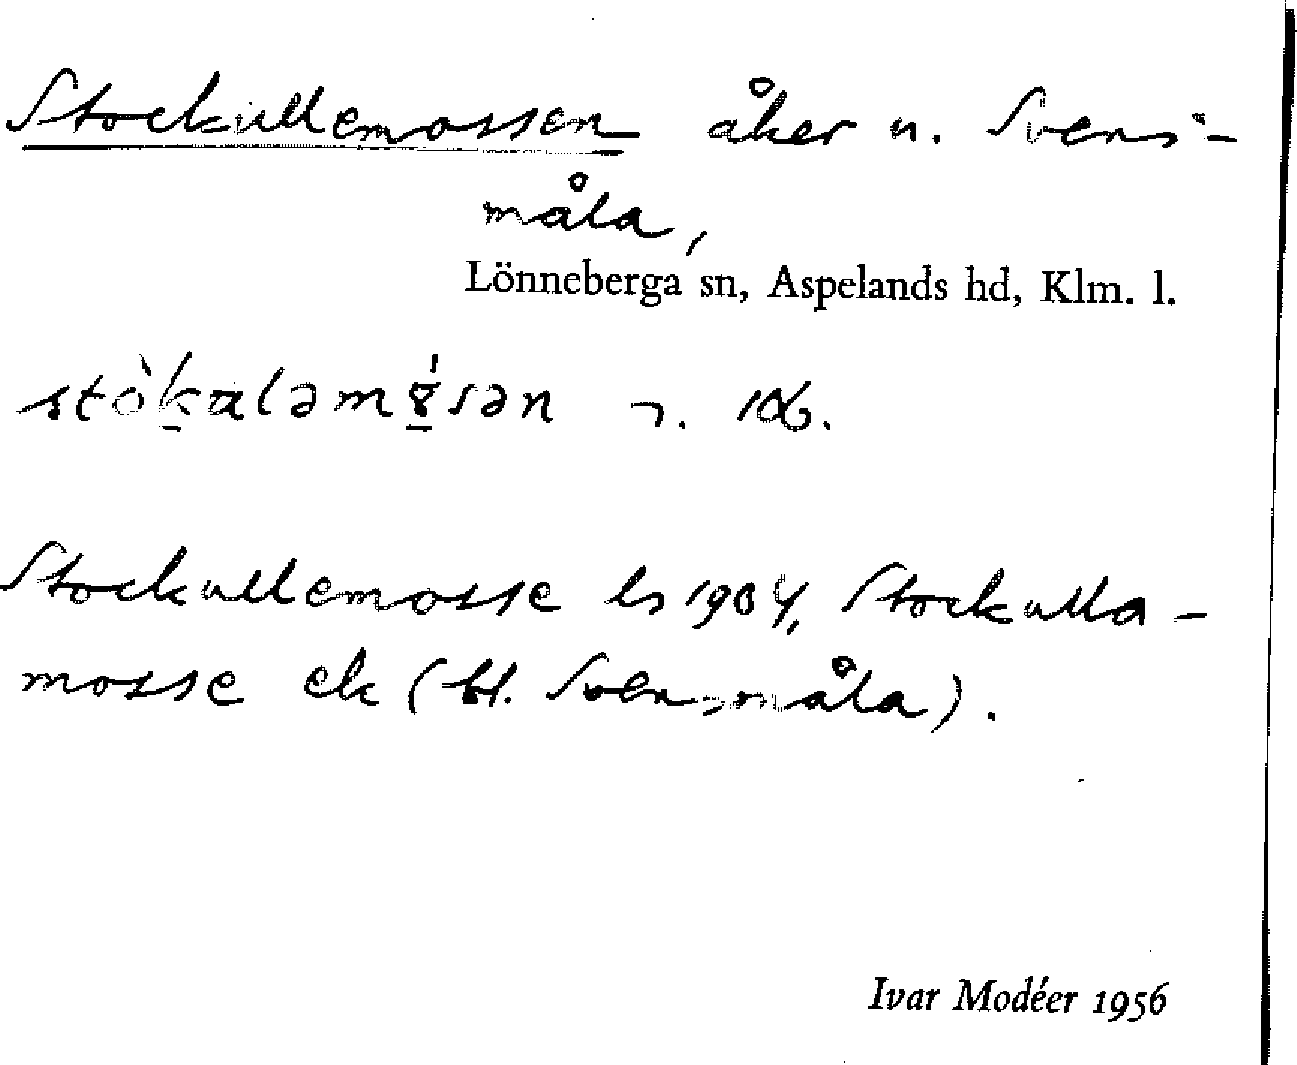 Stockullemossen åker u. Svens-
måla,
Lönneberga sn, Aspelands hd, Klm. l.
Stockullemosse ls 1904, Stockulla-
mosse ek (bl. Svensmåla).
Ivar Modéer 1956